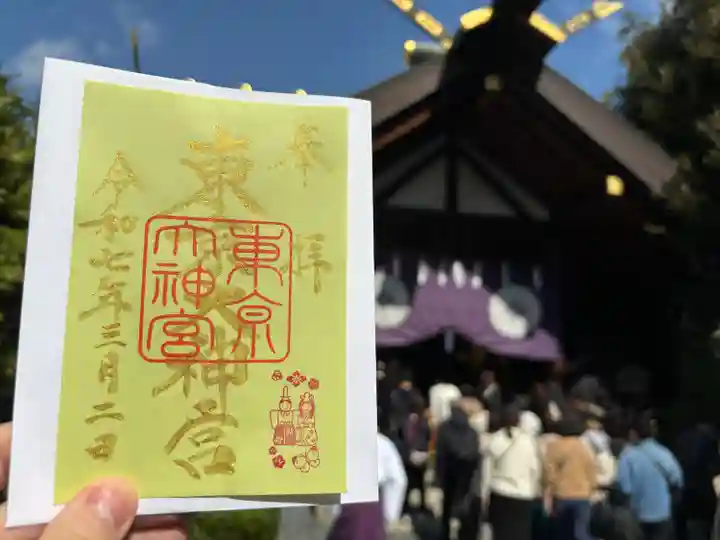 奉拝
東京大神宮
令和七年三月二日
東京
大神宮